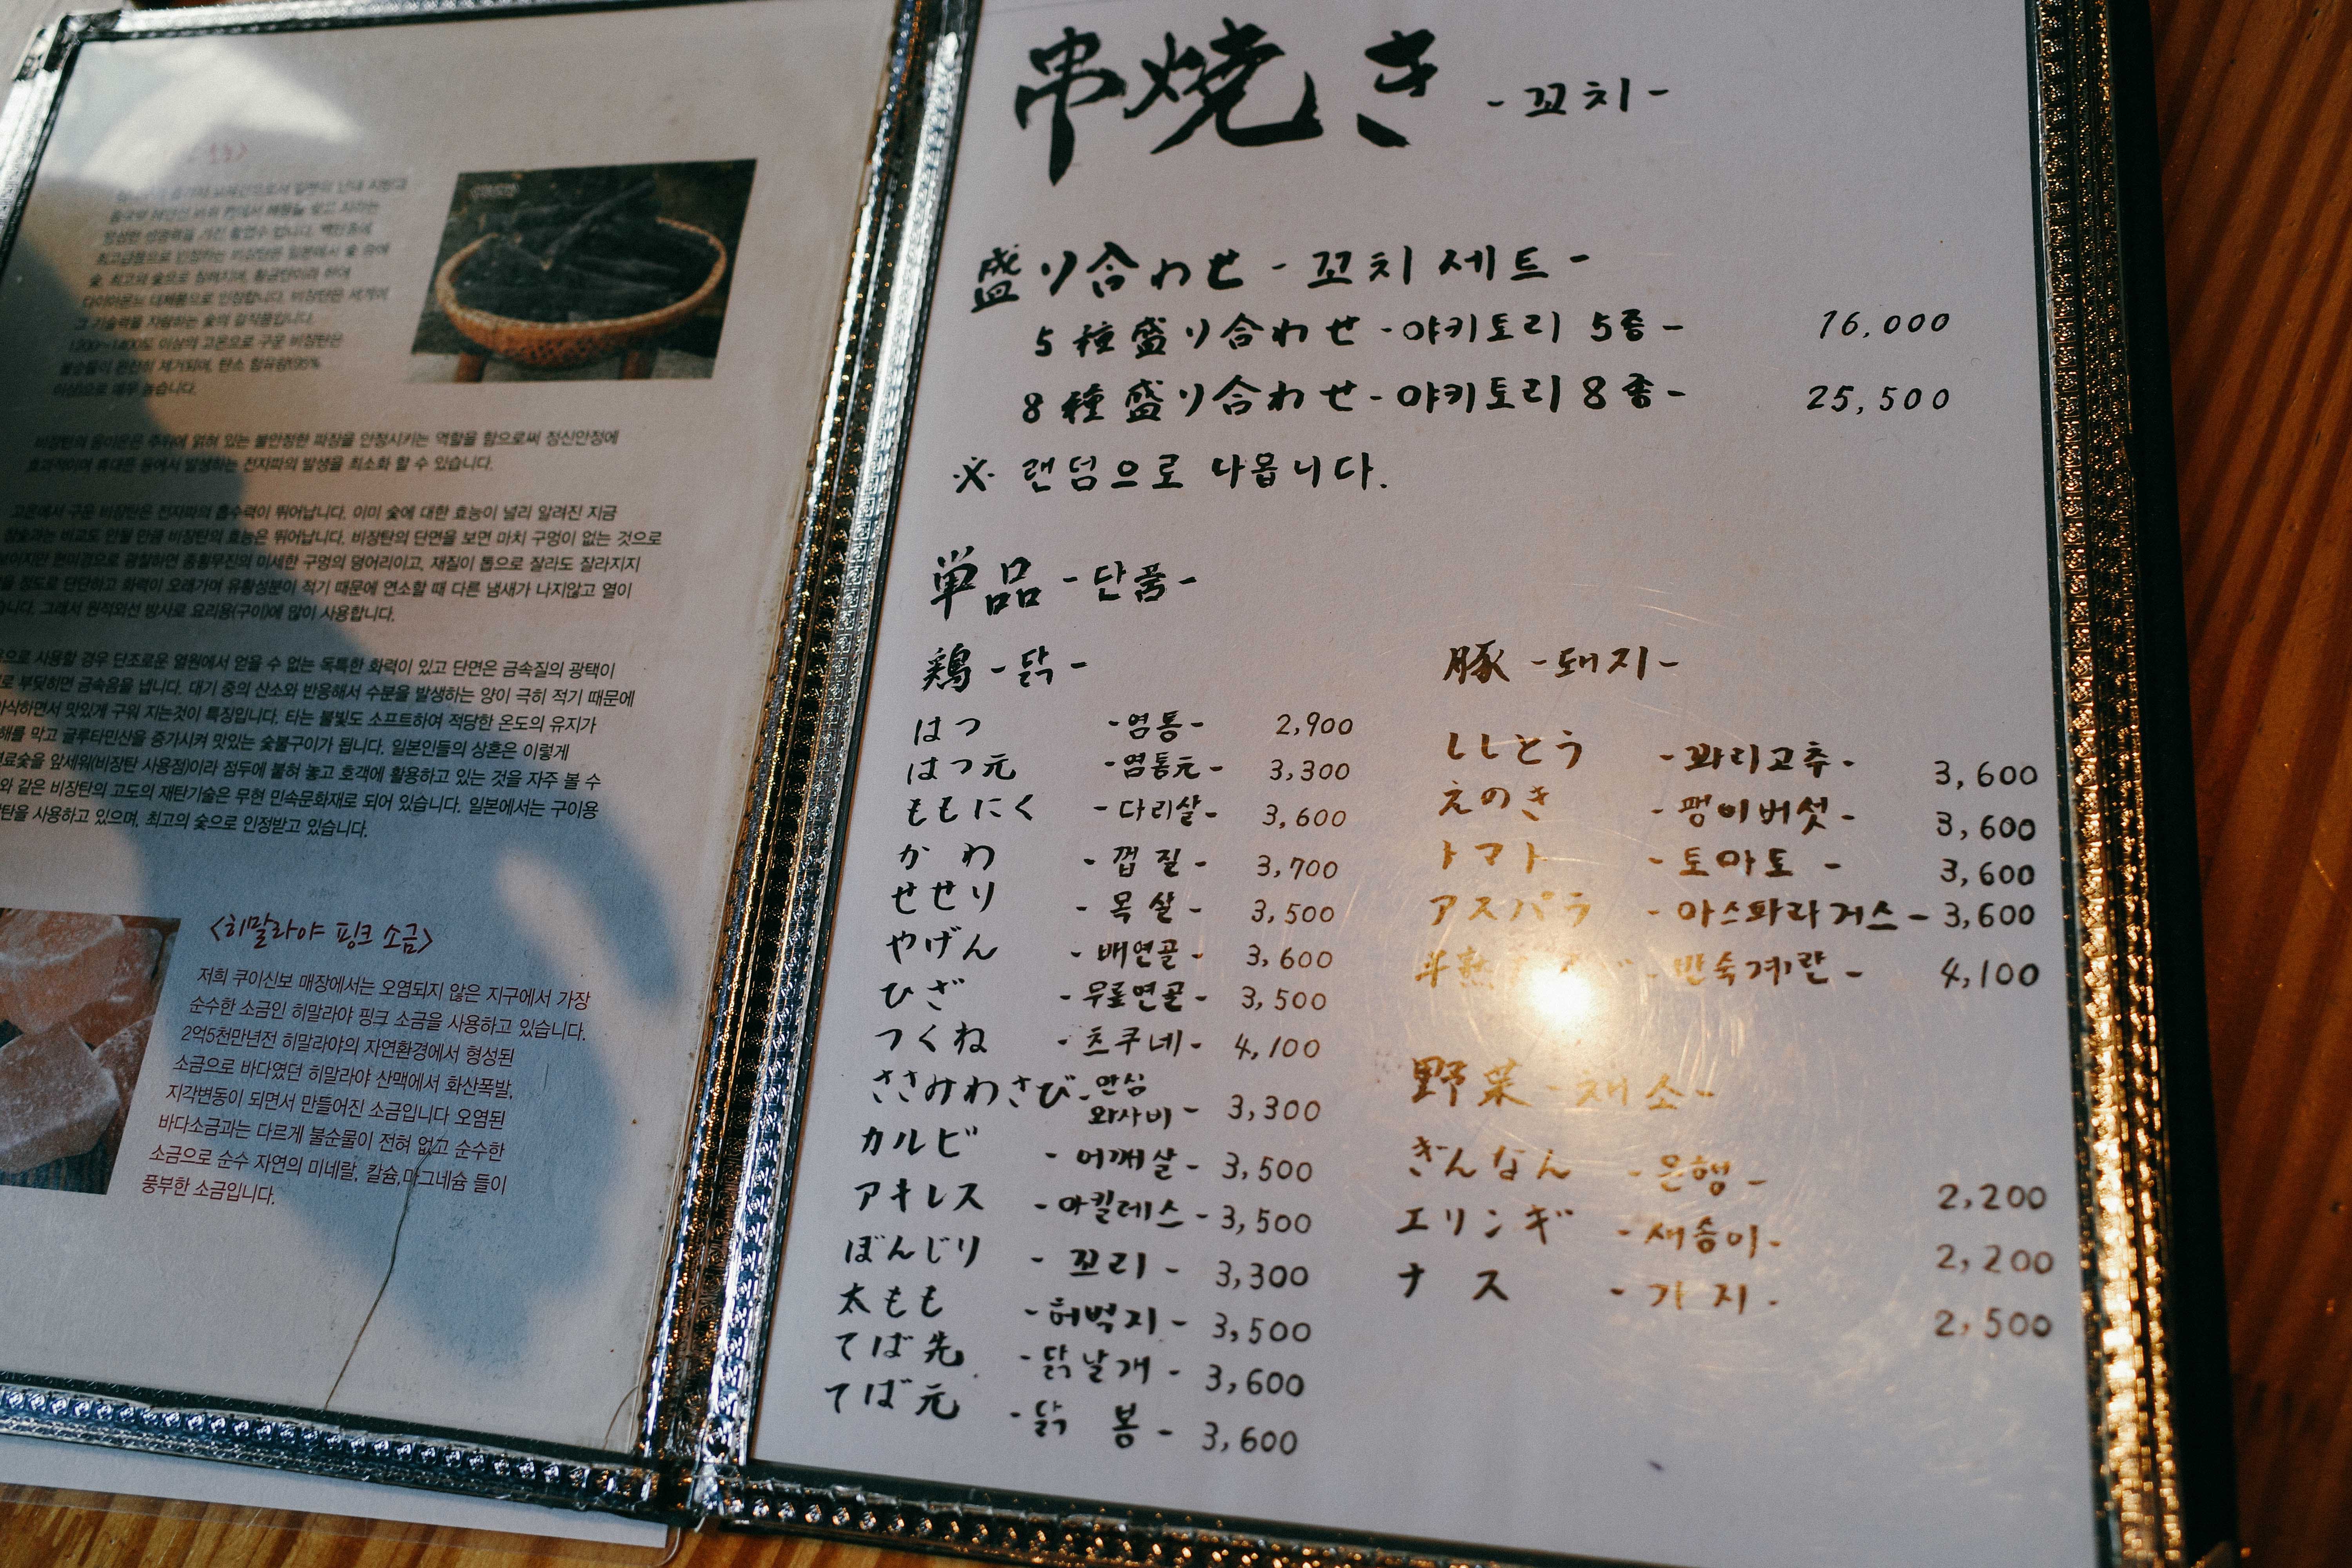 비장탄의 음이온은 주위에 얽혀 있는 불안정한 파장을 안정시키는 역할을 함으로써 정신안정에
효과적이며 휴대폰 등에서 발생하는 전자파의 발생을 최소화 할 수 있습니다.
고온에서 구운 비장탄은 전자파의 흡수력이 뛰어납니다. 이미 숯에 대한 효능이 널리 알려진 지금
참숯과는 비교도 안될 만큼 비장탄의 효능은 뛰어납니다. 비장탄의 단면을 보면 마치 구멍이 없는 것으로
보이지만 현미경으로 관찰하면 종횡무진의 미세한 구멍의 덩어리이고, 재질이 톱으로 잘라도 잘라지지
정도로 단단하고 화력이 오래가며 유황성분이 적기 때문에 연소할 때 다른 냄새가 나지않고 열이
그래서 원적외선 방사로 요리용(구이)에 많이 사용합니다.
사용할 경우 단조로운 열원에서 얻을 수 없는 독특한 화력이 있고 단면은 금속질의 광택이
부딪히면 금속음을 냅니다. 대기 중의 산소와 반응해서 수분을 발생하는 양이 극히 적기 때문에
맛있게 구워 지는것이 특징입니다. 타는 불빛도 소프트하여 적당한 온도의 유지가
막고 글루타민산을 증가시켜 맛있는 숯불구이가 됩니다. 일본인들의 상혼은 이렇게
앞세워(비장탄 사용점)이라 점두에 붙혀 놓고 호객에 활용하고 있는 것을 자주 볼 수
와 같은 비장탄의 고도의 재탄기술은 무현 민속문화재로 되어 있습니다. 일본에서는 구이용
사용하고 있으며, 최고의 숯으로 인정받고 있습니다.
<히말라야 핑크 소금>
저희 쿠이신보 매장에서는 오염되지 않은 지구에서 가장
순수한 소금인 히말라야 핑크 소금을 사용하고 있습니다.
2억5천만년전 히말라야의 자연환경에서 형성된
소금으로 바다였던 히말라야 산맥에서 화산폭발,
지각변동이 되면서 만들어진 소금입니다 오염된
바다소금과는 다르게 불순물이 전혀 없고 순수한
소금으로 순수 자연의 미네랄, 칼슘,마그네슘 들이
풍부한 소금입니다.
串焼き -꼬치-
盛り合わせ -꼬치 세트-
5種盛り合わせ -야키토리 5종- 16,000
8種盛り合わせ -야키토리 8종- 25,500
※ 랜덤으로 나옵니다.
単品 -단품-
鶏 -닭-
はつ -염통- 2,900
はつ元 -염통元- 3,300
ももにく -다리살- 3,600
かわ -껍질- 3,700
せせり -목살- 3,500
やげん -배연골- 3,600
ひざ -무릎연골- 3,500
つくね -츠쿠네- 4,100
ささみわさび -안심 와사비- 3,300
カルビ -어깨살- 3,500
アキレス -아킬레스- 3,500
ぼんじり -꼬리- 3,300
太もも -허벅지- 3,500
てば先 -닭날개- 3,600
てば元 -닭 봉- 3,600
豚 -돼지-
ししとう -꽈리고추- 3,600
えのき -팽이버섯- 3,600
トマト -토마토- 3,600
アスパラ -아스파라거스- 3,600
半熟 -반숙계란- 4,100
野菜 -채소-
ぎんなん -은행- 2,200
エリンギ -새송이- 2,200
ナス -가지- 2,500